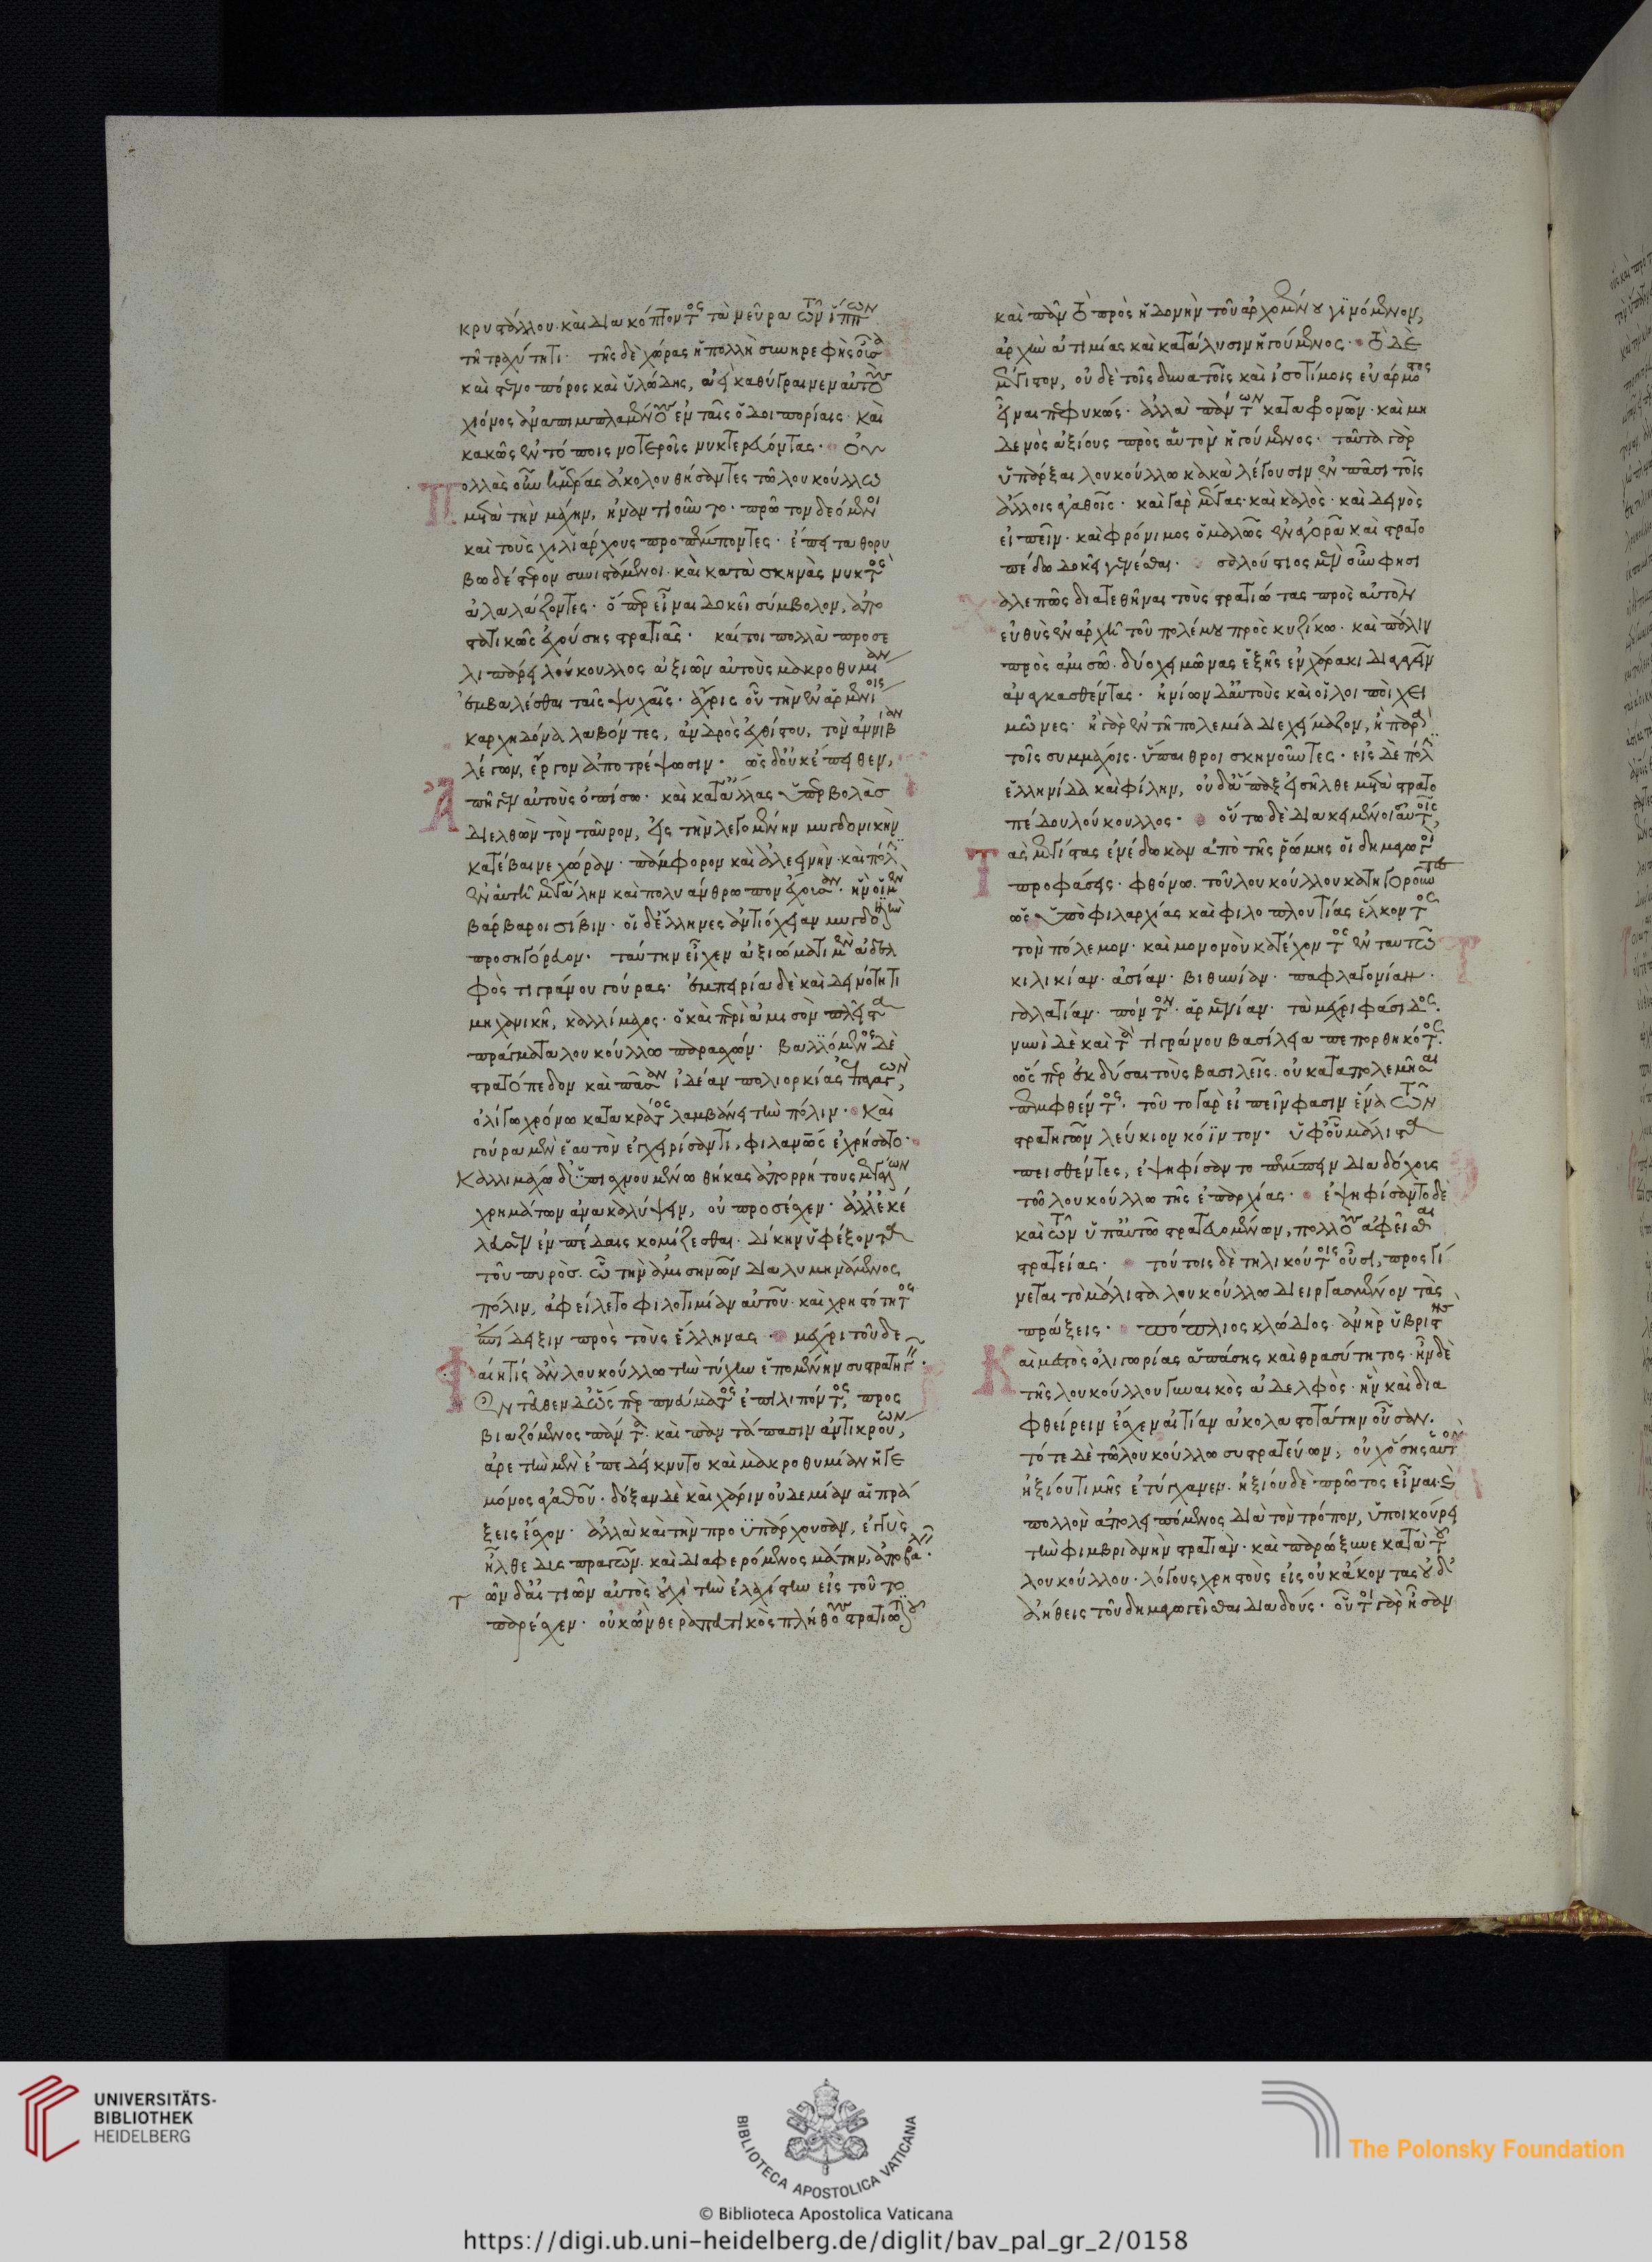 κρυστάλλου· καὶ διακόπτοντος τὰ νεῦρα τῶν ἵππων
τῇ τραχύτητι· τῆς δὲ χώρας ἡ πολλὴ συνηρεφὴς οὖσα
καὶ στενοπόρος καὶ ὑλώδης, ἀεὶ καθύγραινεν αὐτοὺς
χιόνος ἀναπιμπλαμένους ἐν ταῖς ὁδοιπορίαις· καὶ
κακῶς ἐν τόποις νοτεροῖς νυκτερεύοντας· Οὐ
πολλὰς οὖν ἡμέρας ἀκολουθήσαντες τῷ λουκούλλω
μετὰ τὴν μάχην, ἠναντιοῦντο· πρῶτον δεόμενοι
καὶ τοὺς χιλιάρχους προπέμποντες· ἔπειτα θορυ
βωδέστερον συνιστάμενοι· καὶ κατὰ σκηνὰς νυκτὸς
ἀλαλάζοντες· ὅπερ εἶναι δοκεῖ σύμβολον, ἀπο
στατικῶς ἐχούσης στρατιᾶς· καίτοι πολλὰ προσε
λιπάρει λούκουλλος ἀξιῶν αὐτοὺς μακροθυμίαν
ἐμβαλέσθαι ταῖς ψυχαῖς· ἄχρις οὗ τὴν ἐν ἀρμενίοις
καρχηδόνα λαβόντες, ἀνδρὸς ἐχθίστου, τὸν ἀννίβαν
λέγων, ἔργον ἀποτρέψωσιν· ὡς δ' οὐκ ἔπειθεν,
ἀπῆγεν αὐτοὺς ὀπίσω· καὶ κατ' ἄλλας ὑπερβολὰς
διελθὼν τὸν ταῦρον, εἰς τὴν λεγομένην μυγδονικὴν
κατέβαινε χώραν· πάμφορον καὶ ἀλεεινὴν· καὶ πόλιν
ἐν αὐτῇ μεγάλην καὶ πολυάνθρωπον ἔχουσαν· ἣν οἱ μὲν
βάρβαροι σίβιν· οἱ δ' ἕλληνες ἀντιόχειαν μυγδονικὴν
προσηγόρευον· ταύτην εἶχεν ἀξιώματι μὲν ἀδελ
φὸς τιγράνου γούρας· ἐμπειρία δὲ καὶ δεινότητι
μηχανικῇ, καλλίμαχος· ὁ καὶ περὶ ἀμισὸν πλεῖστα
πράγματα λουκούλλω παρασχών· βαλλόμενος δὲ
στρατόπεδον καὶ πᾶσαν ἰδέαν πολιορκίας ἐπαγαγών,
ὀλίγω χρόνω κατακράτος λαμβάνει τὴν πόλιν· Καὶ
γούρα μὲν ἑαυτὸν ἐγχειρίσαντι, φιλανθρώπως ἐχρήσατο·
Καλλιμάχω δ' ὑπισχνουμένω θήκας ἀπορρήτους μεγάλων
χρημάτων ἀνακαλύψειν, οὐ προσέσχεν· ἀλλ' ἐκέ
λευσεν ἐν πέδαις κομίζεσθαι· δίκην ὑφέξοντα
τοῦ πυρὸς. ᾧ τὴν ἀμισηνῶν διαλυμηνάμενος
πόλιν, ἀφείλετο φιλοτιμίαν αὐτοῦ· καὶ χρηστότητος
ἐπίδειξιν πρὸς τοὺς ἕλληνας· μέχρι τοῦδε
φαίη τὶς ἂν λουκούλλω τὴν τύχην ἑπομένην συστρατηγεῖν·
Ἐντεῦθεν δ' ὥσπερ πνεύματος ἐπιλιπόντος, προς
βιαζόμενος πάντα· καὶ παντάπασιν ἀντικρούων,
ἀρετὴν μὲν ἐπεδείκνυτο καὶ μακροθυμίαν ἡγε
μόνος ἀγαθοῦ· δόξαν δὲ καὶ χάριν οὐδεμίαν αἱ πρά
ξεις ἔσχον· ἀλλὰ καὶ τὴν προϋπάρχουσαν, ἐγγὺς
ἦλθε δυσπραγῶν· καὶ διαφερόμενος μάτην, ἀποβαλεῖν·
ὧν δ' αἴτιον αὐτὸς οὐχὶ τὴν ἐλαχίστην εἰς τοῦτο
παρέσχεν· οὐκ ὢν θεραπευτικὸς πλήθους στρατιωτικοῦ
καὶ πᾶν τὸ πρὸς ἡδονὴν τοῦ ἀρχομένου γινόμενον,
ἀρχὴν ἀτιμίας καὶ κατάλυσιν ἡγούμενος· τὸ δὲ
μέγιστον, οὐδὲ τοῖς δυνατοῖς καὶ ἰσοτίμοις εὐάρμοστος
εἶναι πεφυκώς· ἀλλὰ πάντων καταφρονῶν· καὶ μη
δενὸς ἀξίους πρὸς αὑτὸν ἡγούμενος· ταῦτα γὰρ
ὑπάρξαι λουκούλλω κακὰ λέγουσιν ἐν πᾶσι τοῖς
ἄλλοις ἀγαθοῖς· καὶ γὰρ μέγας· καὶ καλὸς· καὶ δεινὸς
εἰπεῖν· καὶ φρόνιμος ὁμαλῶς ἐν ἀγορᾷ καὶ στρατο
πέδω δοκεῖ γενέσθαι· σαλούστιος μὲν οὖν φησι
χαλεπῶς διατεθῆναι τοὺς στρατιώτας πρὸς αὐτὸν
εὐθὺς ἐν ἀρχῇ τοῦ πολέμου πρὸς κυζίκω· καὶ πάλιν
πρὸς ἀμισῷ. δύο χειμῶνας ἑξῆς ἐν χάρακι διαγαγεῖν
ἀναγκασθέντας· ἠνίων δ' αὐτοὺς καὶ οἱ λοιποὶ χει
μῶνες· ἢ γὰρ ἐν τῇ πολεμία διεχείμαζον, ἢ παρὰ
τοῖς συμμάχοις· ὕπαιθροι σκηνοῦντες· εἰς δὲ πόλιν
ἑλληνίδα καὶ φίλην, οὐδ' ἅπαξ εἰσῆλθε μετὰ στρατο
πέδου λούκουλλος· οὕτω δὲ διακειμένοις αὐτοῖς,
τὰς μεγίστας ἐνέδωκαν ἀπὸ τῆς ῥώμης οἱ δημαγωγοὶ
προφάσεις· φθόνω. τοῦ λουκούλλου κατηγοροῦντες
ὡς ὑπὸ φιλαρχίας καὶ φιλοπλουτίας ἕλκοντος
τὸν πόλεμον· καὶ μονονοὺ κατέχοντος ἐν ταυτῷ
κιλικίαν· ἀσίαν· βιθυνίαν· παφλαγονίαν·
γαλατίαν· πόντον· ἀρμενίαν· τὰ μέχρι φάσιδος·
νυνὶ δὲ καὶ τὰ τιγράνου βασίλεια πεπορθηκότος·
ὥσπερ ἐκδύσαι τοὺς βασιλεῖς. οὐ καταπολεμῆσαι
πεμφθέντος· τοῦτο γὰρ εἰπεῖν φασιν ἕνα τῶν
στρατηγῶν λεύκιον κόϊντον· ὑφ' οὗ μάλιστα
πεισθέντες, ἐψηφίσαντο πέμπειν διαδόχους
τῷ λουκούλλω τῆς ἐπαρχίας· ἐψηφίσαντο δὲ
καὶ τῶν ὑπ' αὐτῷ στρατευομένων, πολλοὺς ἀφεῖσθαι
στρατείας· τούτοις δὲ τηλικούτοις οὖσι, προσγί
νεται τὸ μάλιστα λουκούλλω διειργασμένον τὰς
πράξεις· πόπλιος κλώδιος. ἀνὴρ ὑβριστὴς
καὶ μεστὸς ὀλιγωρίας ἁπάσης καὶ θρασύτητος· ἦν δὲ
τῆς λουκούλλου γυναικὸς ἀδελφὸς· ἣν καὶ δια
φθείρειν ἔσχεν αἰτίαν ἀκολαστοτάτην οὖσαν.
τότε δὲ τῷ λουκούλλω συστρατεύων, οὐχ ὅσης αὑτὸν
ἠξίου τιμῆς ἐτύγχανεν· ἠξίου δὲ πρῶτος εἶναι· καὶ
πολλῶν ἀπολειπόμενος διὰ τὸν τρόπον, ὑποικούρει
τὴν φιμβριανὴν στρατιὰν· καὶ παρώξυνε κατὰ τοῦ
λουκούλλου· λόγους χρηστοὺς εἰς οὐκ ἄκοντας οὐδ'
ἀήθεις τοῦ δημαγωγεῖσθαι διαδούς· οὗτοι γὰρ ἦσαν
UNIVERSITÄTS-
BIBLIOTHEK
HEIDELBERG
BIBLIOTECA APOSTOLICA VATICANA
The Polonsky Foundation
© Biblioteca Apostolica Vaticana
https://digi.ub.uni-heidelberg.de/diglit/bav_pal_gr_2/0158